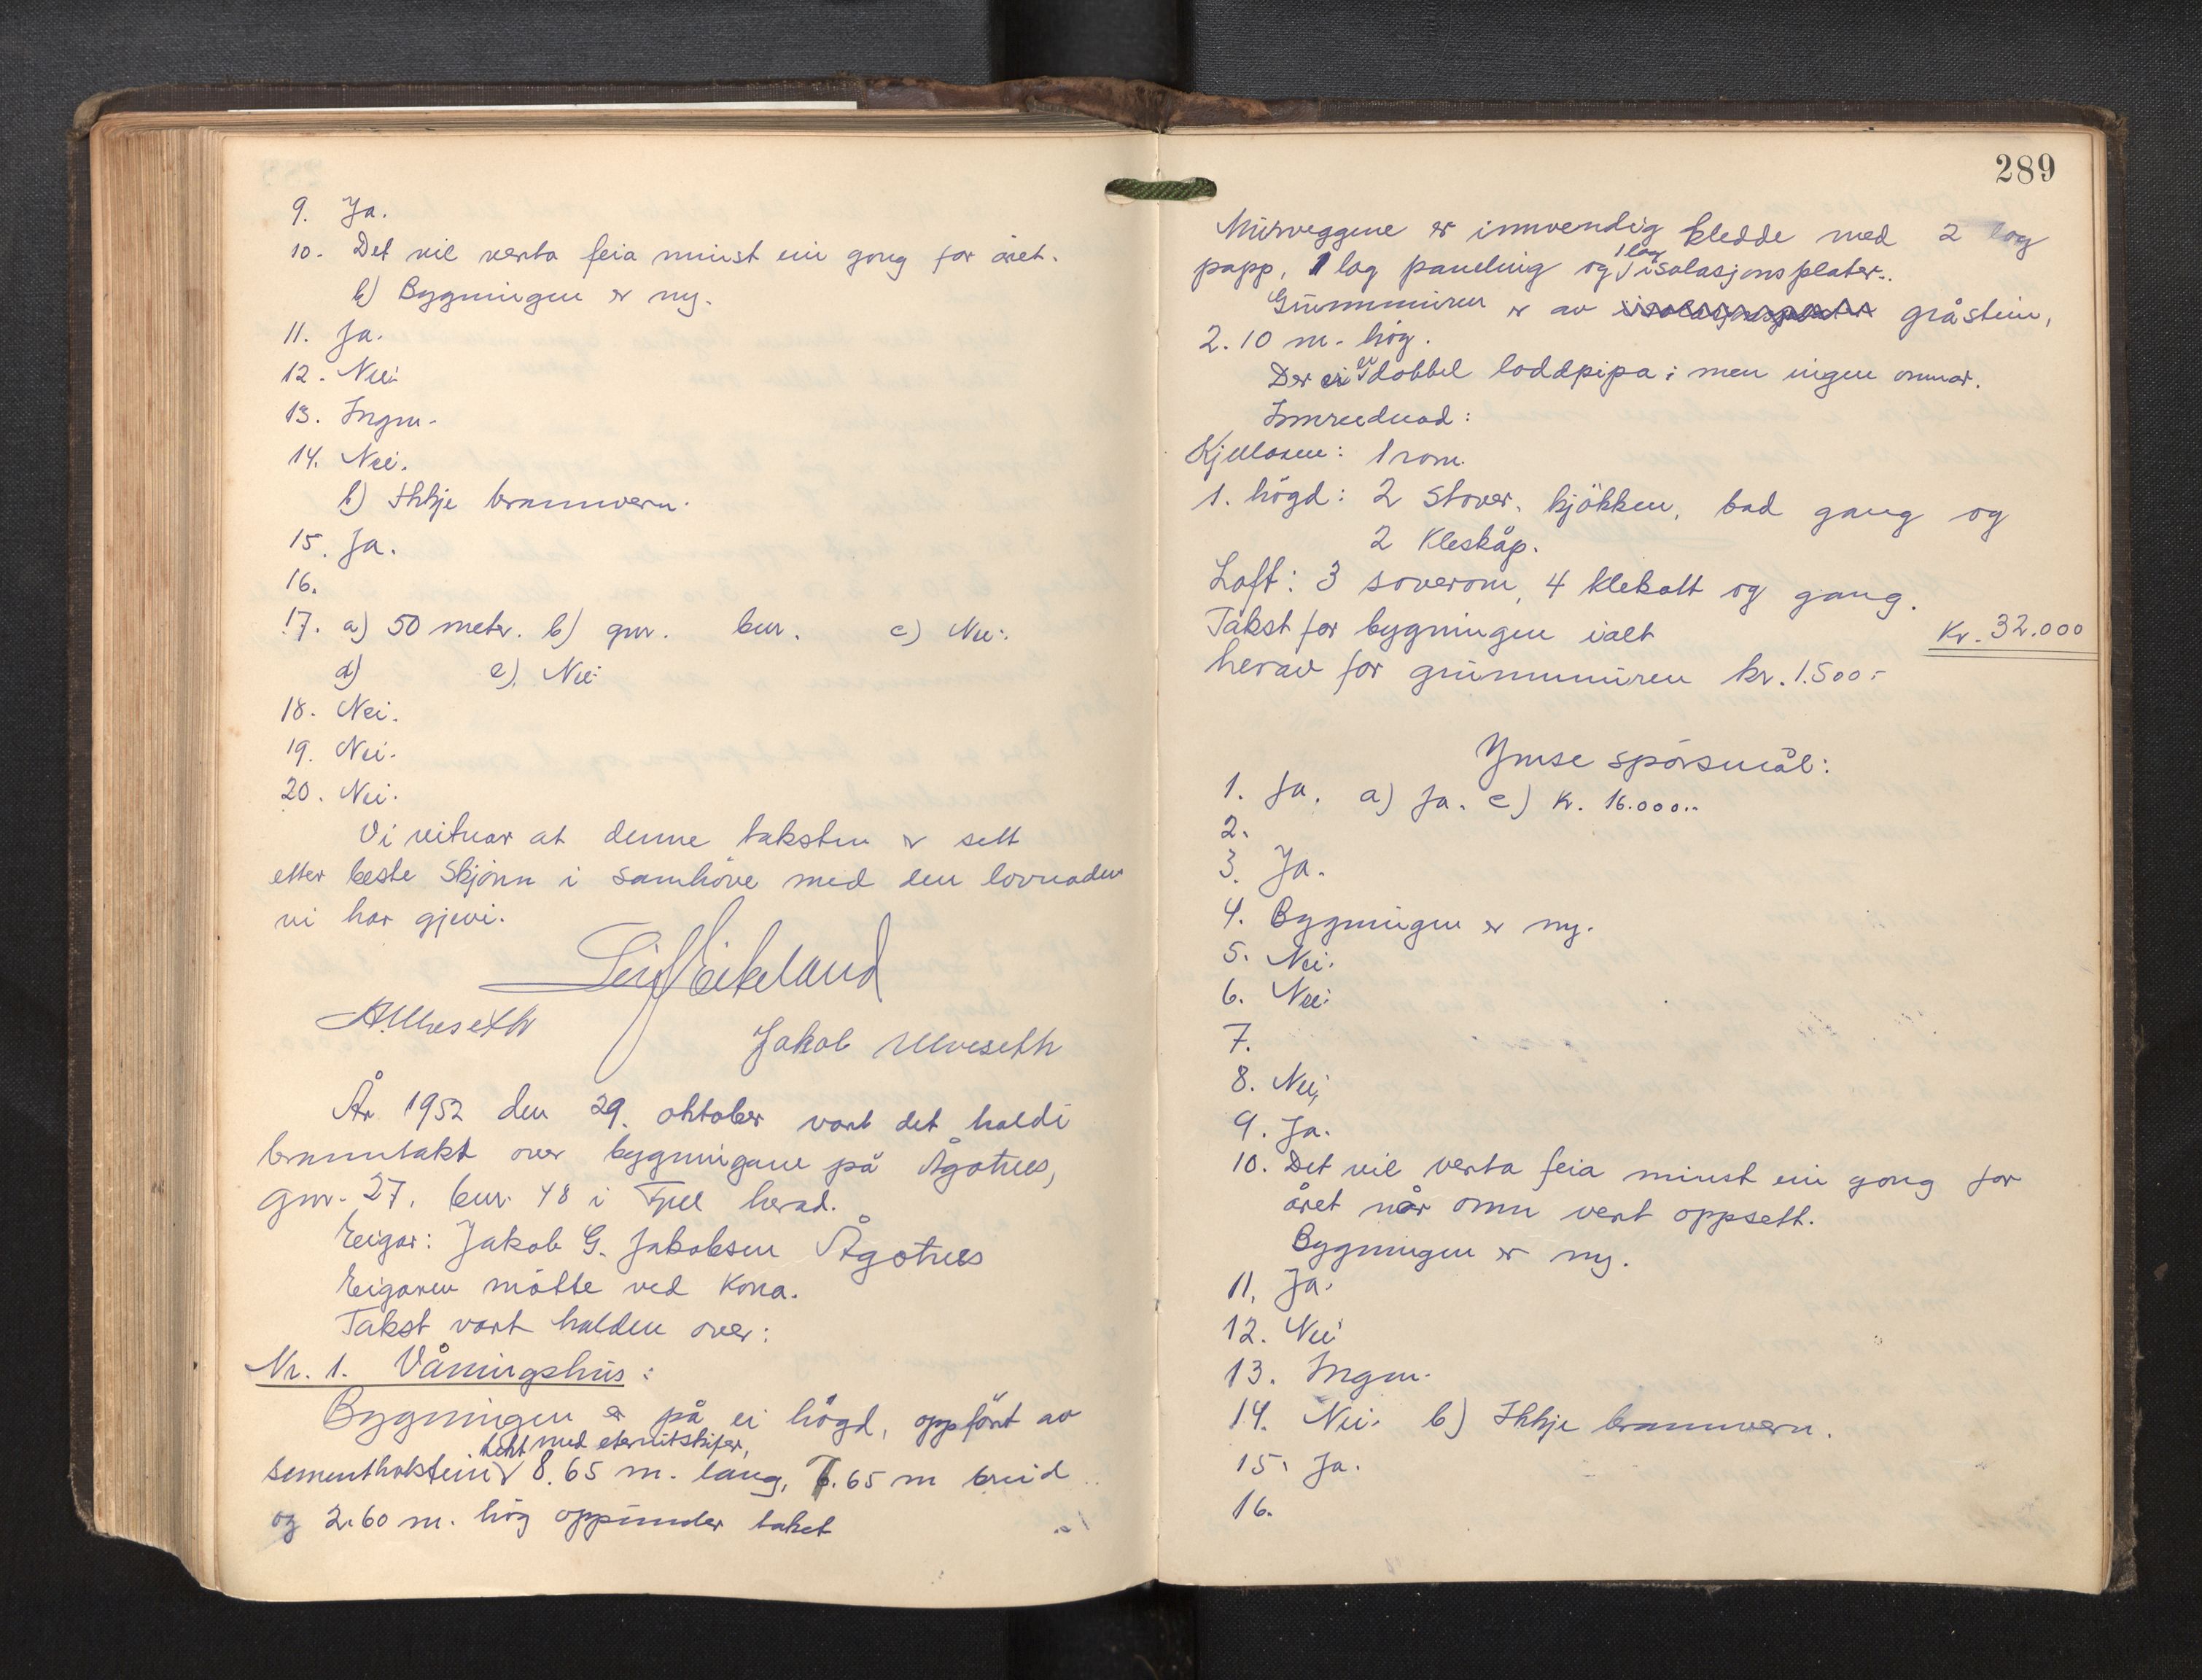 9. Ja.
10. Det vil verta feia minst ein gong for året.
b) Bygningen er ny.
11. Ja.
12. Nei
13. Ingen.
14. Nei.
b) Ikkje brannvern.
15. Ja.
16.
17. a) 50 meter. b) gnr. bnr. c) Nei.
d) e). Nei
18. Nei.
19. Nei.
20. Nei.
Vi vitnar at denne taksten er sett
etter beste Skjönn i samhöve med den lovnaden
vi har gjevi.
Leif Eikeland
A. Ulveseth
Jakob Ulveseth
År 1952 den 29. oktober vart det haldi
branntakst over bygningane på Ågotnes,
gnr. 27. bnr. 48 i Fjell herad.
Eigar: Jakob G. Jakobsen Ågotnes
Eigaren mötte ved Kona.
Takst vart halden over:
Nr. 1. Våningshus:
Bygningen er på ei högd, oppfört av
tekt med eternitskifer,
sementholstein 8.65 m. lang, 7.65 m breid
og 2.60 m. hög oppunder taket
289
Murveggene er innvendig kledde med 2 lag
papp, 1 lag paneling og 1 lag isolasjonsplater.
Grunnmuren er av gråstein,
2.10 m. hög.
Der er ei dobbel loddpipa; men ingen omnar.
Innreidnad:
Kjellaren: 1 rom.
1. högd: 2 Stover, kjökken, bad gang og
2 Kleskåp.
Loft: 3 soverom, 4 klekott og gang.
Takst for bygningen ialt Kr. 32.000
herav for grunnmuren kr. 1.500.-
Ymse spörsmål:
1. Ja. a) Ja. c) Kr. 16.000.-
2.
3. Ja.
4. Bygningen er ny.
5. Nei.
6. Nei
7.
8. Nei,
9. Ja.
10. Det vil verta feia minst ein gong for
året når omn vert oppsett.
Bygningen er ny.
11. Ja.
12. Nei
13. Ingen.
14. Nei. b) Ikkje brannvern.
15. Ja.
16.